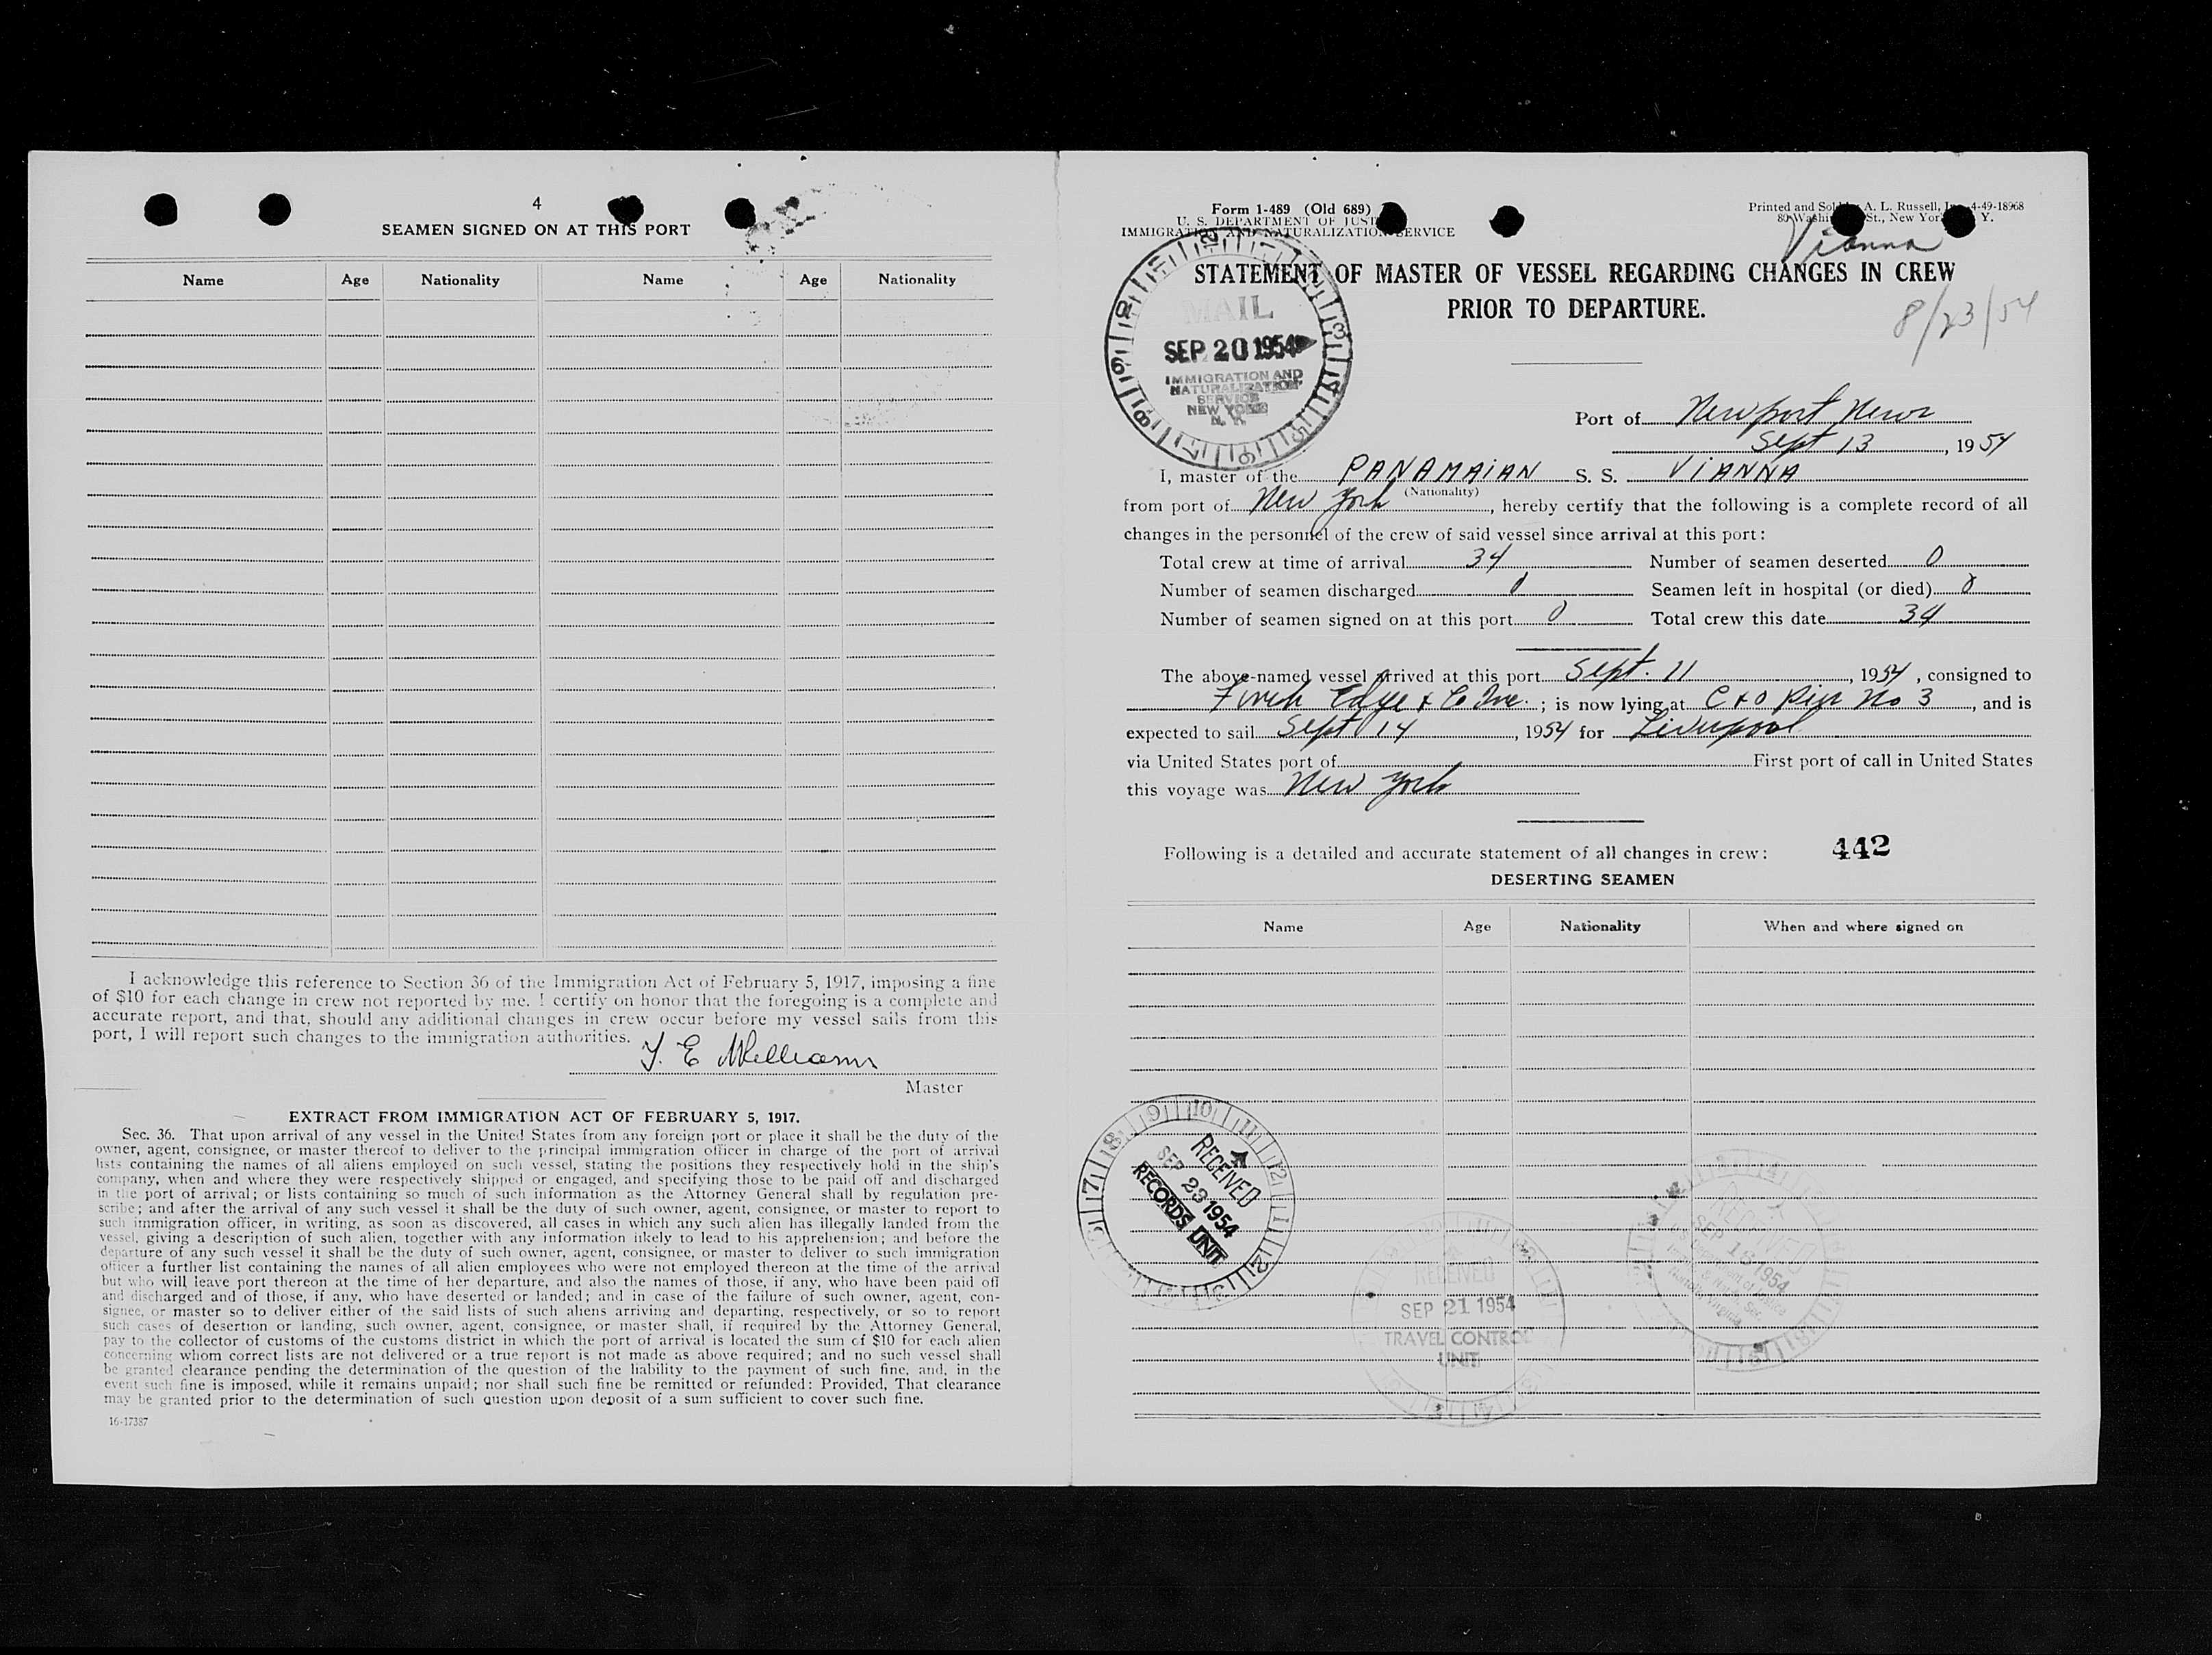 4
SEAMEN SIGNED ON AT THIS PORT
Name Age Nationality Name Age Nationality
I acknowledge this reference to Section 36 of the Immigration Act of February 5, 1917, imposing a fine
of $10 for each change in crew not reported by me. I certify on honor that the foregoing is a complete and
accurate report, and that, should any additional changes in crew occur before my vessel sails from this
port, I will report such changes to the immigration authorities.
E Williams
Master
EXTRACT FROM IMMIGRATION ACT OF FEBRUARY 5, 1917.
Sec. 36. That upon arrival of any vessel in the United States from any foreign port or place it shall be the duty of the
owner, agent, consignee, or master thereof to deliver to the principal immigration officer in charge of the port of arrival
lists containing the names of all aliens employed on such vessel, stating the positions they respectively hold in the ship's
company, when and where they were respectively shipped or engaged, and specifying those to be paid off and discharged
in the port of arrival; or lists containing so much of such information as the Attorney General shall by regulation pre-
scribe; and after the arrival of any such vessel it shall be the duty of such owner, agent, consignee, or master to report to
such immigration officer, in writing, as soon as discovered, all cases in which any such alien has illegally landed from the
vessel, giving a description of such alien, together with any information likely to lead to his apprehension; and before the
departure of any such vessel it shall be the duty of such owner, agent, consignee, or master to deliver to such immigration
officer a further list containing the names of all alien employees who were not employed thereon at the time of the arrival
but who will leave port thereon at the time of her departure, and also the names of those, if any, who have been paid off
and discharged and of those, if any, who have deserted or landed; and in case of the failure of such owner, agent, con-
signee, or master so to deliver either of the said lists of such aliens arriving and departing, respectively, or so to report
such cases of desertion or landing, such owner, agent, consignee, or master shall, if required by the Attorney General,
pay to the collector of customs of the customs district in which the port of arrival is located the sum of $10 for each alien
concerning whom correct lists are not delivered or a true report is not made as above required; and no such vessel shall
be granted clearance pending the determination of the question of the liability to the payment of such fine, and, in the
event such fine is imposed, while it remains unpaid; nor shall such fine be remitted or refunded: Provided, That clearance
may be granted prior to the determination of such question upon deposit of a sum sufficient to cover such fine.
16-17387
Form 1-489 (Old 689)
U. S. DEPARTMENT OF JUST
IMMIGRATION AND NATURALIZATION SERVICE
Printed and Sol A. L. Russell, In 4-49-18968
80 Washi St., New Yor Y.
Vianna
STATEMENT OF MASTER OF VESSEL REGARDING CHANGES IN CREW
PRIOR TO DEPARTURE.
8/23/54
MAIL
SEP 20 1954
IMMIGRATION AND
NATURALIZATION
SERVICE
NEW YORK
N. Y.
Port of Newport News
Sept 13, 1954
I, master of the PANAMAIAN S. S. VIANNA
(Nationality)
from port of New York, hereby certify that the following is a complete record of all
changes in the personnel of the crew of said vessel since arrival at this port:
Total crew at time of arrival 34 Number of seamen deserted 0
Number of seamen discharged 0 Seamen left in hospital (or died) 0
Number of seamen signed on at this port 0 Total crew this date 34
The above-named vessel arrived at this port Sept. 11, 1954, consigned to
Finch Edye & Co Inc.; is now lying at C & O Pier No 3, and is
expected to sail Sept 14, 1954 for Liverpool
via United States port of First port of call in United States
this voyage was New York
Following is a detailed and accurate statement of all changes in crew: 442
DESERTING SEAMEN
Name Age Nationality When and where signed on
RECEIVED
SEP 23 1954
RECORDS UNIT
RECEIVED
SEP 21 1954
TRAVEL CONTROL
UNIT
RECEIVED
1954